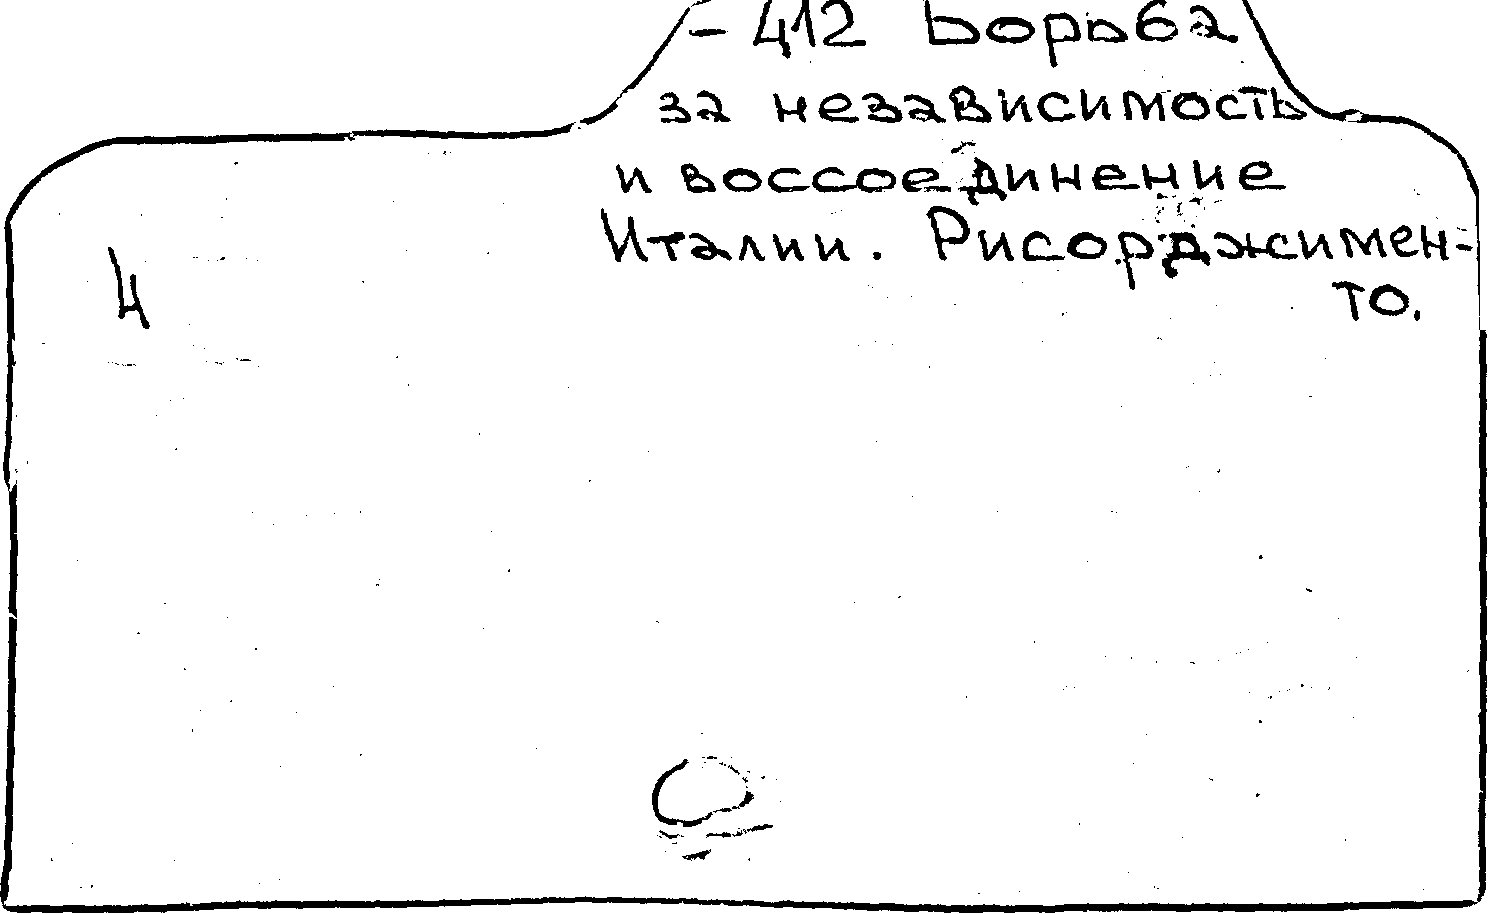 - 412 Борьба
за независимость
и воссоединение
Италии. Рисорджимен-
то.
4